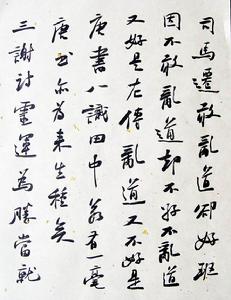 司馬遷敢亂道卻好班
固不敢亂道却不好不亂道
又好是左傳亂道又不好是
唐書八識田中若有一毫
唐書亦為來生種矣
三謝詩靈運為勝當就